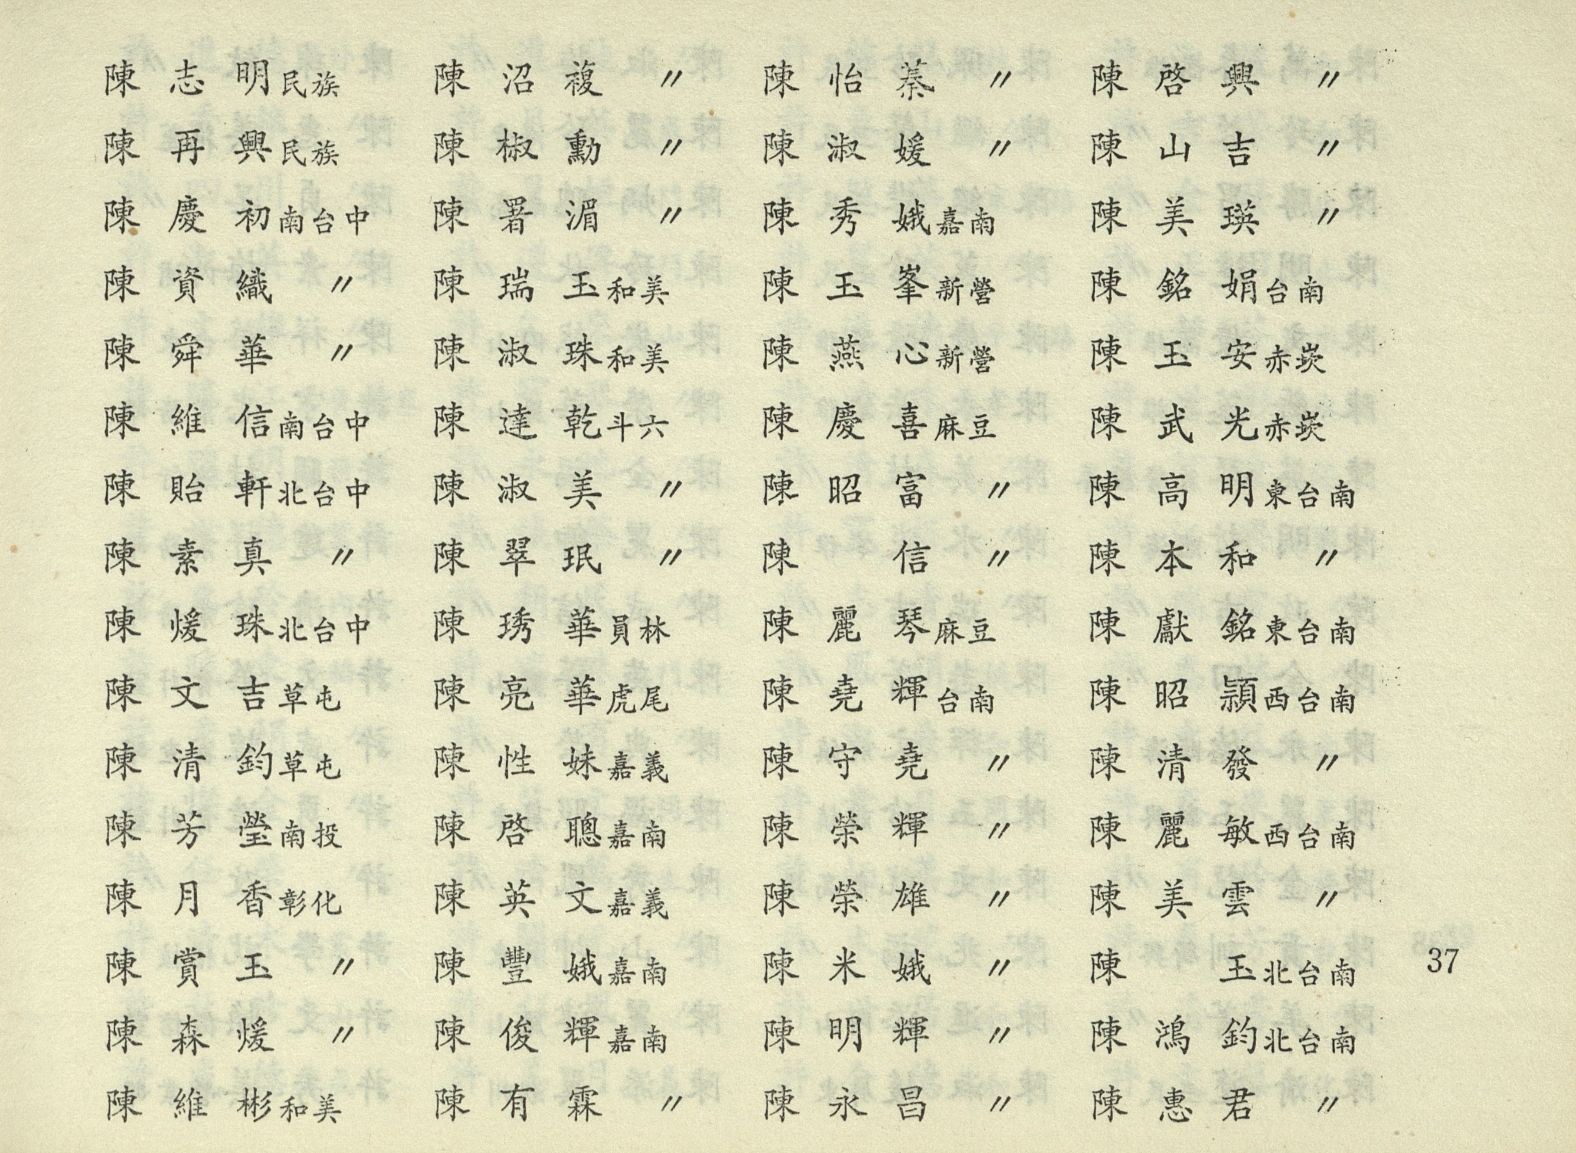 陳志明民族 陳沼複〃 陳怡蓁〃 陳啓興〃
陳再興民族 陳椒勳〃 陳淑媛〃 陳山吉〃
陳慶初南台中 陳署湄〃 陳秀娥嘉南 陳美瑛〃
陳資織〃 陳瑞玉和美 陳玉峯新營 陳銘娟台南
陳舜華〃 陳淑珠和美 陳燕心新營 陳玉安赤崁
陳維信南台中 陳達乾斗六 陳慶喜麻豆 陳武光赤崁
陳貽軒北台中 陳淑美〃 陳昭富〃 陳高明東台南
陳素真〃 陳翠珉〃 陳信〃 陳本和〃
陳煖珠北台中 陳琇華員林 陳麗琴麻豆 陳獻銘東台南
陳文吉草屯 陳亮華虎尾 陳堯輝台南 陳昭頴西台南
陳清鈞草屯 陳性妹嘉義 陳守堯〃 陳清發〃
陳芳瑩南投 陳啓聰嘉南 陳榮輝〃 陳麗敏西台南
陳月香彰化 陳英文嘉義 陳榮雄〃 陳美雲〃
陳賞玉〃 陳豐娥嘉南 陳米娥〃 陳玉北台南
37
陳森煖〃 陳俊輝嘉南 陳明輝〃 陳鴻鈞北台南
陳維彬和美 陳有霖〃 陳永昌〃 陳惠君〃